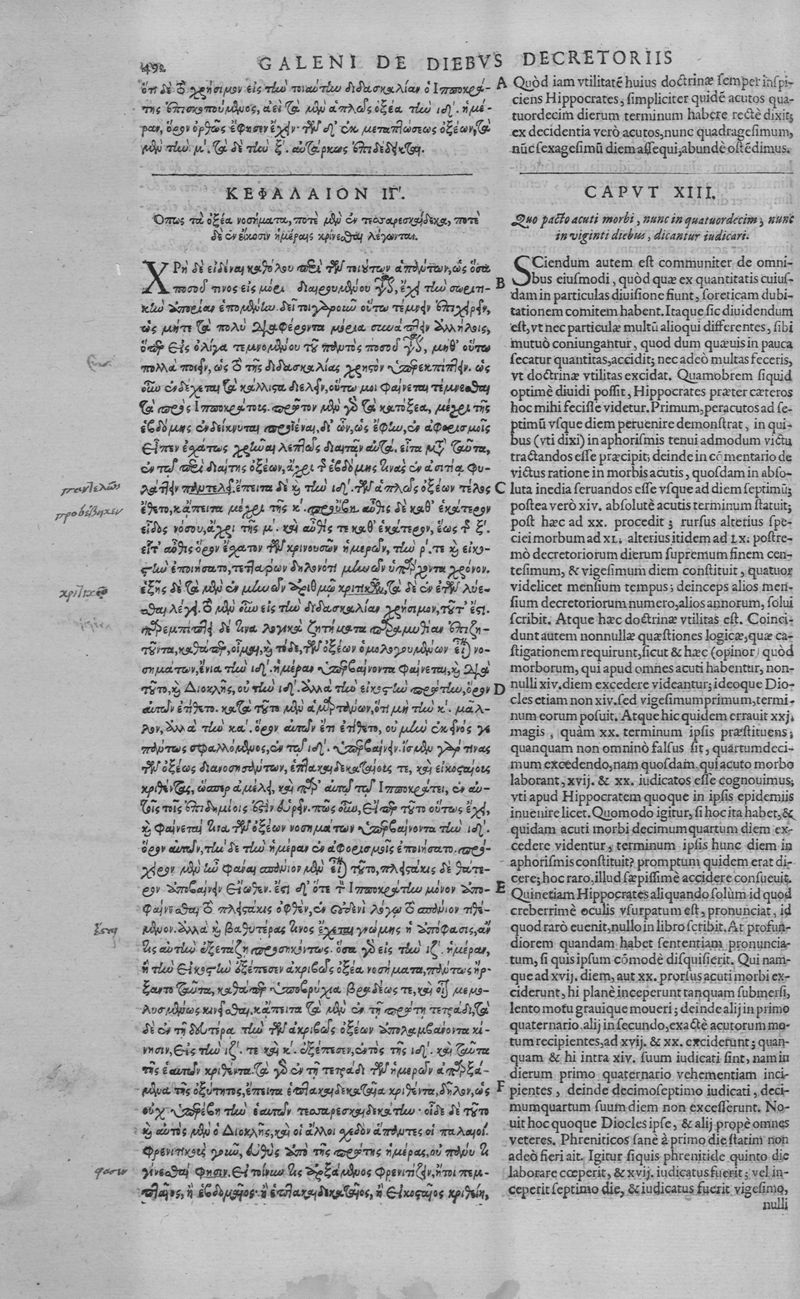 492 GALENI DE DIEBVS DECRETORIIS
ὅτι δὲ τὸ χρήσιμον εἰς τὴν τοιαύτην διδασκαλίαν ὁ Ἱπποκρά-
της ἐπισκοπούμενος, ἀεὶ τὰ μὲν ἁπλῶς ὀξέα τὴν ιδ΄. ἡμέ-
ραν, ὅρον ὀρθῶς ἔφησεν ἔχειν· τῶν δ᾽ ἐκ μεταπτώσεως ὀξέων, τὰ
μὲν τὴν μ΄. τὰ δὲ τὴν ξ΄. αὐτάρκως ἐπιδέδεικται.
ΚΕΦΑΛΑΙΟΝ ΙΓ΄.
Ὅπως τὰ ὀξέα νοσήματα, ποτὲ μὲν ἐν τεσσαρεσκαίδεκα, ποτὲ
δὲ ἐν εἴκοσιν ἡμέραις κρίνεσθαι λέγονται.
ΧΡὴ δὲ εἰδέναι καθόλου περὶ τῶν τοιούτων ἁπάντων, ὡς ὅσα
ποσοῦ τινος εἰς μόρια διαιρουμένου ἔχει τὴν σωριτι-
κὴν ἀπορίαν ἑπομένην. δεῖ τοιγαροῦν οὕτω τέμνειν ἐπιχειρεῖν,
ὡς μήτε τὰ πολὺ διαφέροντα μόρια συνάπτειν ἀλλήλοις,
ὅπερ εἰς ὀλίγα τεμνομένου τοῦ παντὸς ποσοῦ μήθ᾽ οὕτω
πολλὰ ποιεῖν, ὡς τὸ τῆς διδασκαλίας χρηστὸν ὑπερεκπίπτειν. ὡς
οὖν ἐνδέχεται τὰ κάλλιστα διελεῖν, οὕτω μοι φαίνεται τέμνεσθαι
τὰ πρὸς Ἱπποκράτους. πρῶτον μὲν γὰρ τὰ κατόξεα, μέχρι τῆς
ἑβδόμης ἐνδείκνυται προϊέναι, δι᾽ ὧν, ὡς ἔφην, ἐν ἀφορισμοῖς
εἶπεν ἐσχάτως χρῆναι λεπτῶς διαιτᾶν αὐτά, εἶτα μετὰ ταῦτα,
ἐν τῷ περὶ διαίτης ὀξέων, ἄχρι τῆς ἑβδόμης τινὰς ἐν ἀσιτίᾳ φυ-
λάττειν παντελεῖ. ἔπειτα δὲ καὶ τὴν ιδ΄. τῶν ἁπλῶς ὀξέων τέλος
ἔθετο, κἄπειτα μέχρι τῆς κ΄. προὔβη. αὖθις δὲ καθ᾽ ἑκάτερον
εἶδος νόσου, ἄχρι τῆς μ΄. καὶ αὖθίς τε καθ᾽ ἑκάτερον, ἕως τῆς ξ΄.
εἶτ᾽ αὖθις ὅρον ἔσχατον τῶν κρινουσῶν ἡμερῶν, τὴν ρ΄. τε καὶ εἰκο-
στὴν ἐποιήσατο, τεττάρων δηλονότι μηνῶν ὑπάρχοντα χρόνον.
ἑξῆς δὲ τὰ μὲν ἐν μηνῶν ἀριθμῷ κριτικῶν, τὰ δὲ ἐν ἐτῶν λύε-
σθαι λέγει. τὸ μὲν οὖν εἰς τὴν διδασκαλίαν χρήσιμον, τοῦτ᾽ ἔστι.
παρεμπίπτει δὲ τινα λογικὰ ζητήματα παραμυθίαν ἐπιζη-
τοῦντα, καθάπερ, οἶμαι, καὶ τόδε, τῶν ὀξέων ὁμολογουμένων εἶναι νο-
σημάτων, ἔνια τὴν ιδ΄. ἡμέραν ὑπερβαίνοντα φαίνεται, καὶ διὰ
τοῦτο, καὶ Διοκλῆς, οὐ τὴν ιδ΄. ἀλλὰ τὴν εἰκοστὴν πρώτην, ὅρον
αὐτῶν ἐτίθετο. κατὰ τοῦτο μὲν ἁμαρτών, ὅτι μὴ τὴν κ΄. μᾶλ-
λον, ἀλλὰ τὴν κα΄. ὅρον αὐτῶν ἔτι ἐτίθετο, οὐ μὴν ἐκεῖνός γε
πάντως σφαλλόμενος, ἐν τῷ τὴν ιδ΄. ὑπερβαίνειν. ἴσμεν γάρ τινας
τῶν ὀξέως διανοσησάντων, ἑπτακαιδεκαταίους τε, καὶ εἰκοσταίους
κριθέντας, ὥσπερ ἀμέλει, καὶ παρ᾽ αὐτῷ τῷ Ἱπποκράτει, ἐν αὐ-
τοῖς τοῖς ἐπιδημίοις ἐστὶν εὑρεῖν. πῶς οὖν, εἴπερ τοῦτο οὕτως ἔχει,
καὶ φαίνεταί τινα τῶν ὀξέων νοσημάτων ὑπερβαίνοντα τὴν ιδ΄.
ὅρον αὐτῶν, τήνδε τὴν ἡμέραν ἐν ἀφορισμοῖς ἐποιήσατο. πρό-
χειρον μὲν ἦν φάναι σπάνιον μὲν εἶναι τοῦτο, πλειστάκις δὲ θάτε-
ρον ἀποβαίνειν εἴωθεν. ἔστι δ᾽ ὅτε τῷ Ἱπποκράτει μόνον ἀπο-
φαίνεσθαι τὸ πλειστάκις ὀφθέν, ἐν οὐδενὶ λόγῳ τὸ σπάνιον τιθε-
μένου. ἀλλὰ καὶ βαθυτέρας τινὸς ἔχεται γνώμης ἡ ἀπόφασις, ἄν
τις αὐτὴν ἐξετάζῃ προσηκόντως. ὅσα γὰρ εἰς τὴν ιζ΄. ἡμέραν,
ἢ τὴν εἰκοστὴν ἐξέπεσεν ἀκριβῶς ὀξέα νοσήματα, πάντως ἤρ-
ξαντο ταῦτα, καθάπερ ὑποβρύχια βραδέως τε, καὶ μεμο-
λυσμένως κινεῖσθαι, κἄπειτα τὰ μὲν ἐν τῇ πρώτῃ τετράδι, τὰ
δὲ ἐν τῇ δευτέρᾳ τὴν τῶν ἀκριβῶς ὀξέων ἀπολαμβάνοντα κί-
νησιν, εἰς τὴν ιζ΄. τε καὶ κ΄. ἐξέπεσεν, ἐντὸς τῆς ιδ΄. καὶ ταῦτα
τῆς ἑαυτῶν κριθέντα. τὰ γὰρ ἐν τῇ τετράδι τῶν ἡμερῶν ἀπαρξά-
μενα τῆς ὀξύτητος, ἔπειτα ἑπτακαιδεκαταῖα κριθέντα, δῆλον, ὡς
οὐχ ὑπερέβη τὴν ἑαυτῶν τεσσαρεσκαιδεκάτην. οἶδε δὲ τοῦτο
καὶ αὐτὸς μὲν ὁ Διοκλῆς, καὶ οἱ ἄλλοι σχεδὸν ἅπαντες οἱ παλαιοί.
φρενιτικοὺς γοῦν, εὐθὺς ἀπὸ τῆς πρώτης ἡμέρας, οὐ πάνυ τι
γίνεσθαί φησιν. εἰ τοίνυν τις ἀρξάμενος φρενιτίζειν, ἤτοι πεμ-
πταῖος, ἢ ἑβδομαῖος· ἢ ἑπτακαιδεκαταῖος, ἢ εἰκοσταῖος κριθείη,
παντελῶς
προβέβηκεν
φασιν
A Quòd iam vtilitatē huius doctrinæ semper inspi-
ciens Hippocrates, simpliciter quidē acutos qua-
tuordecim dierum terminum habere rectè dixit;
ex decidentia verò acutos, nunc quadragesimum,
nūc sexagesimū diem assequi, abundè ostēdimus.
CAPVT XIII.
Quo pacto acuti morbi, nunc in quatuordecim, nunc
in viginti diebus, dicantur iudicari.
SCiendum autem est communiter de omni-
B bus eiusmodi, quòd quæ ex quantitatis cuius-
dam in particulas diuisione fiunt, soreticam dubi-
tationem comitem habent. Itaque sic diuidendum
est, vt nec particulæ multū alioqui differentes, sibi
mutuò coniungantur, quod dum quæuis in pauca
secatur quantitas, accidit; nec adeò multas feceris,
vt doctrinæ vtilitas excidat. Quamobrem siquid
optimè diuidi possit, Hippocrates præter cæteros
hoc mihi fecisse videtur. Primum, peracutos ad se-
ptimū vsque diem peruenire demonstrat, in qui-
bus (vti dixi) in aphorismis tenui admodum victu
tractandos esse præcipit; deinde in cōmentario de
victus ratione in morbis acutis, quosdam in abso-
C luta inedia seruandos esse vsque ad diem septimū;
postea verò xiv. absolutè acutis terminum statuit;
post hæc ad xx. procedit; rursus alterius spe-
ciei morbum ad XL. alterius itidem ad LX. postre-
mò decretoriorum dierum supremum finem cen-
tesimum, & vigesimum diem constituit, quatuor
videlicet mensium tempus; deinceps alios men-
sium decretoriorum numero, alios annorum, solui
scribit. Atque hæc doctrinæ vtilitas est. Coinci-
dunt autem nonnullæ quæstiones logicæ, quæ ca-
stigationem requirunt, sicut & hæc (opinor) quòd
morborum, qui apud omnes acuti habentur, non-
D nulli xiv. diem excedere videantur; ideoque Dio-
cles etiam non xiv. sed vigesimum primum, termi-
num eorum posuit. Atque hic quidem errauit xxj.
magis, quàm xx. terminum ipsis præstituens;
quanquam non omninò falsus sit, quartumdeci-
mum excedendo, nam quosdam, qui acuto morbo
laborant, xvij. & xx. iudicatos esse cognouimus;
vti apud Hippocratem quoque in ipsis epidemiis
inuenire licet. Quomodo igitur, si hoc ita habet, &
quidam acuti morbi decimumquartum diem ex-
cedere videntur, terminum ipsis hunc diem in
aphorismis constituit? promptum quidem erat di-
cere; hoc rarò, illud sæpissimè accidere consueuit.
E Quinetiam Hippocrates aliquando solùm id quod
creberrimè oculis vsurpatum est, pronunciat, id
quod rarò euenit, nullo in libro scribit. At profun-
diorem quandam habet sententiam pronuncia-
tum, si quis ipsum cōmodè disquisierit. Qui nam-
que ad xvij. diem, aut xx. prorsus acuti morbi ex-
ciderunt, hi planè inceperunt tanquam submersi,
lento motu grauique moueri; deinde alij in primo
quaternario, alij in secundo, exactè acutorum mo-
tum recipientes, ad xvij. & xx. exciderunt; quan-
quam & hi intra xiv. suum iudicati sint, nam in
dierum primo quaternario vehementiam inci-
F pientes, deinde decimoseptimo iudicati, deci-
mumquartum suum diem non excesserunt. No-
uit hoc quoque Diocles ipse, & alij propè omnes
veteres. Phreniticos sanè à primo die statim non
adeò fieri ait. Igitur siquis phrenitide quinto die
laborare cœperit, & xvij. iudicatus fuerit; vel in-
ceperit septimo die, & iudicatus fuerit vigesimo,
nulli